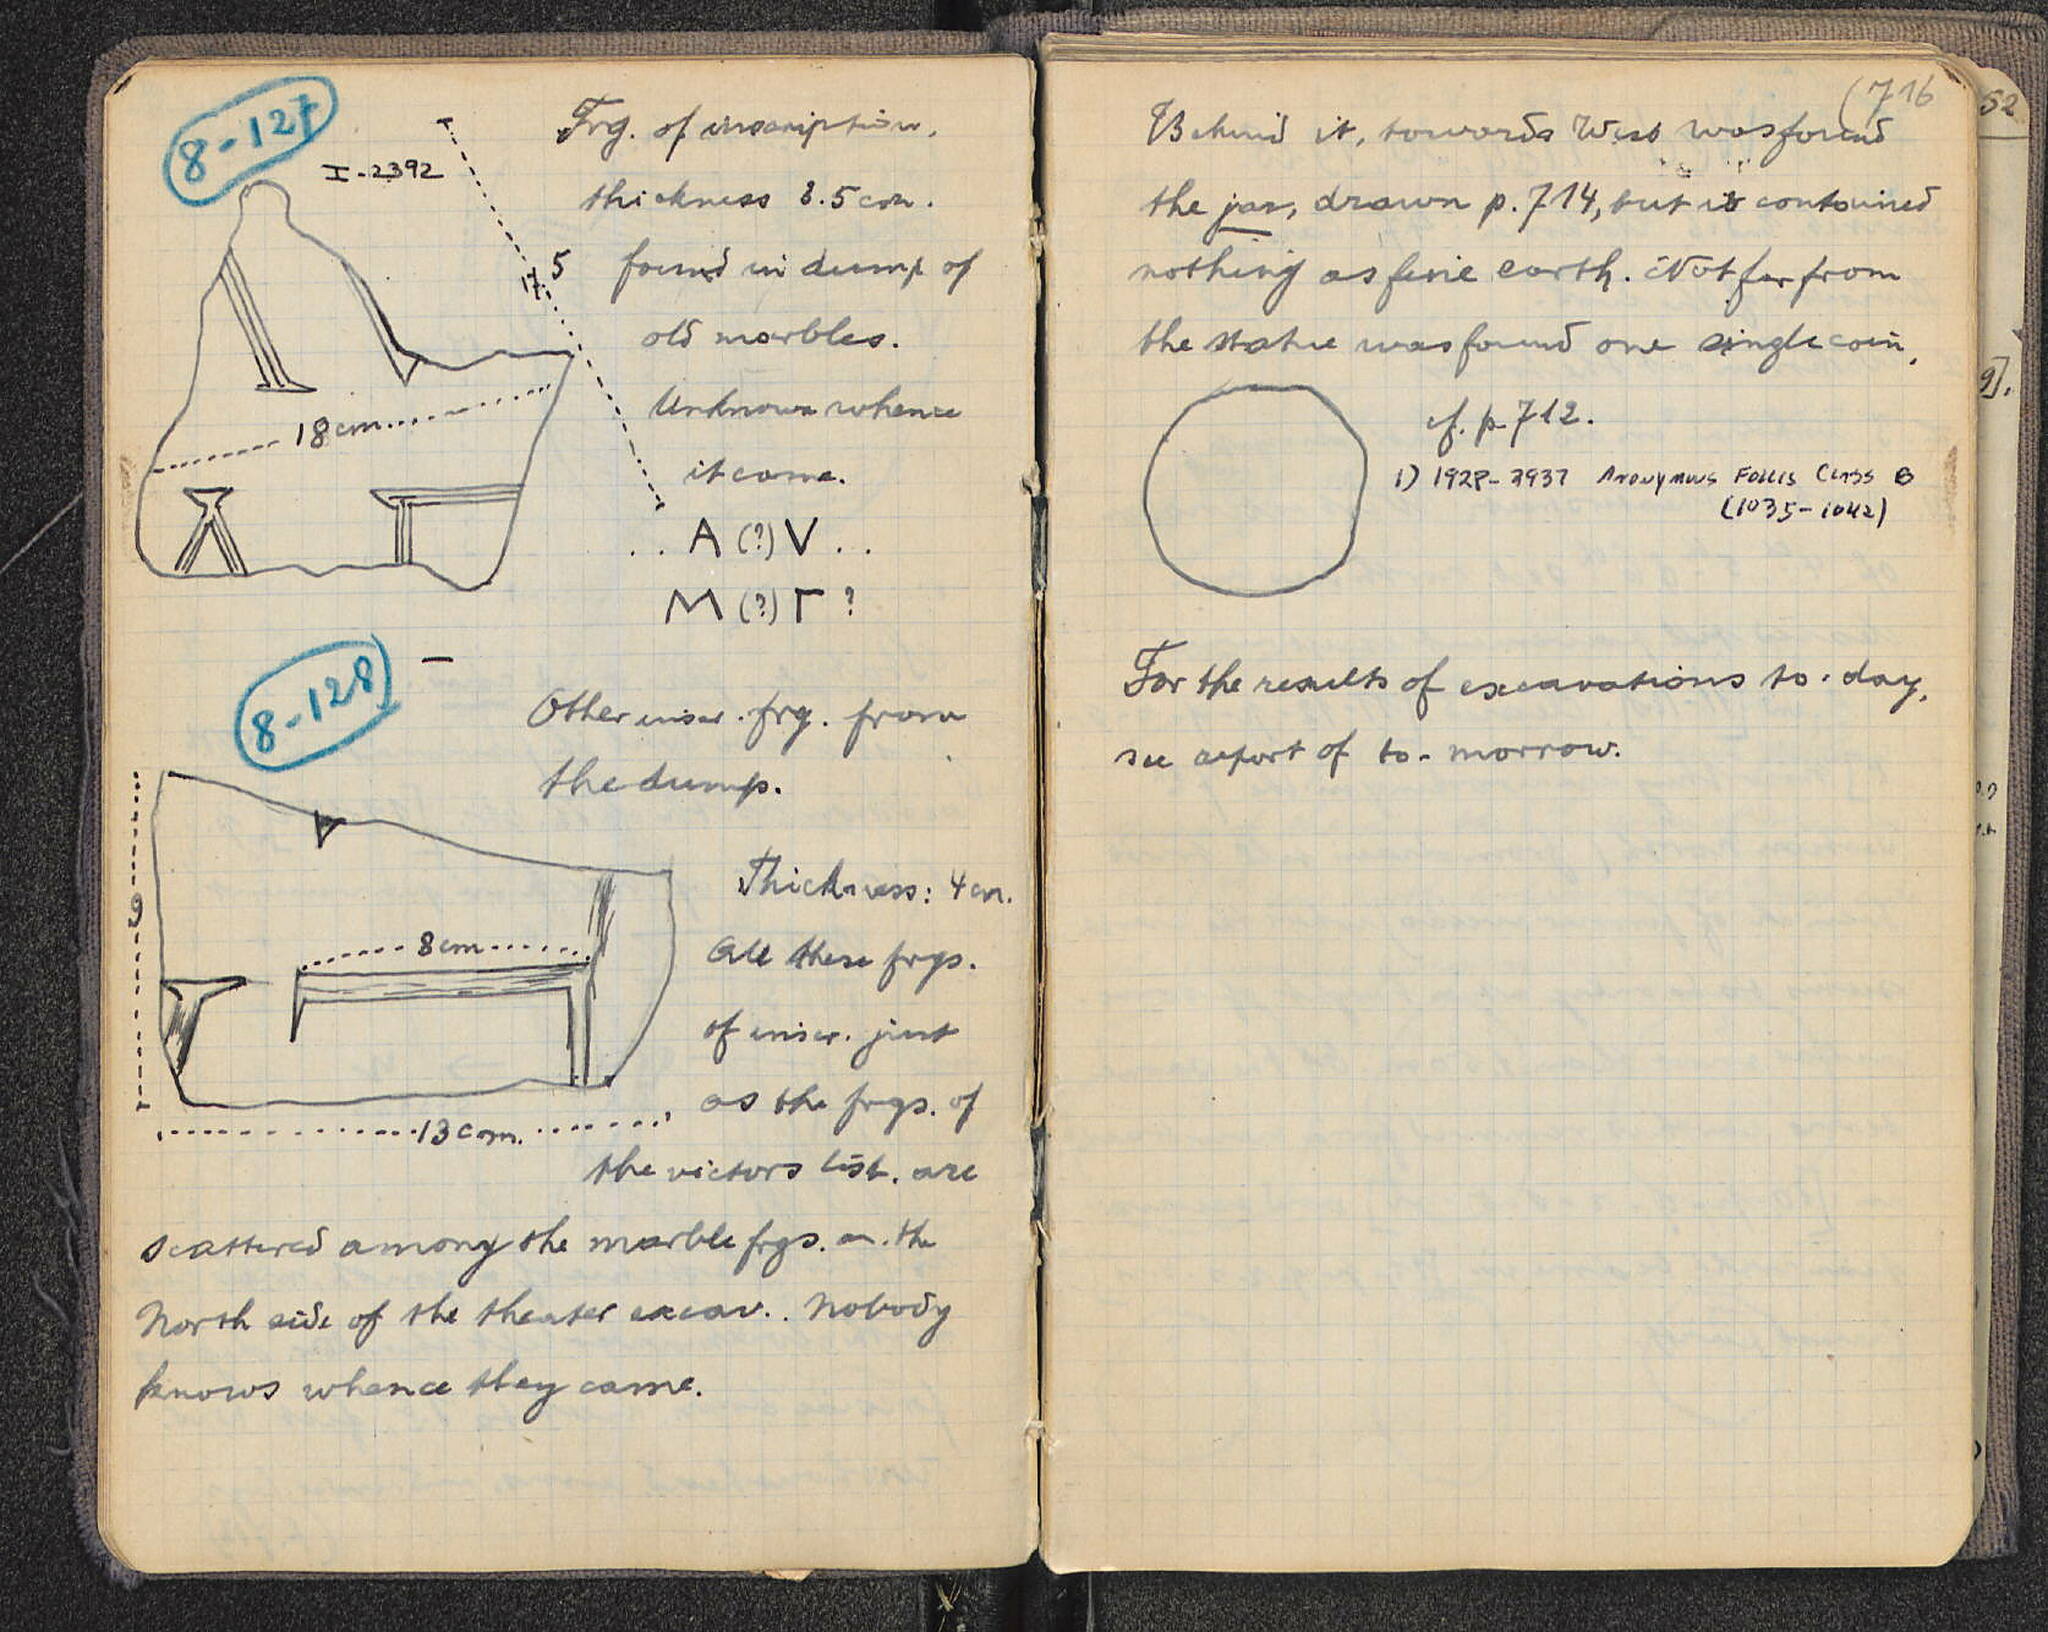 8-127
I-2392
Frg. of inscription.
thickness 8.5 cm.
17.5
found in dump of
old marbles.
Unknown whence
it came.
18 cm
.. A (?) V ..
M (?) Γ ?
8-128
Other inscr. frg. from
the dump.
Thickness: 4 cm.
9
8 cm
All these frgs.
of inscr. just
as the frgs. of
13 cm.
the victors list. are
scattered among the marble frgs. on the
North side of the theater excav.. Nobody
knows whence they came.
(716
Behind it, towards West was found
the jar, drawn p. 714, but it contained
nothing as fine earth. Not far from
the statue was found one single coin,
cf. p 712.
1) 1928-2937 Anonymous Follis Class B
(1035-1042)
For the results of excavations to-day,
see report of to-morrow.
52
9].